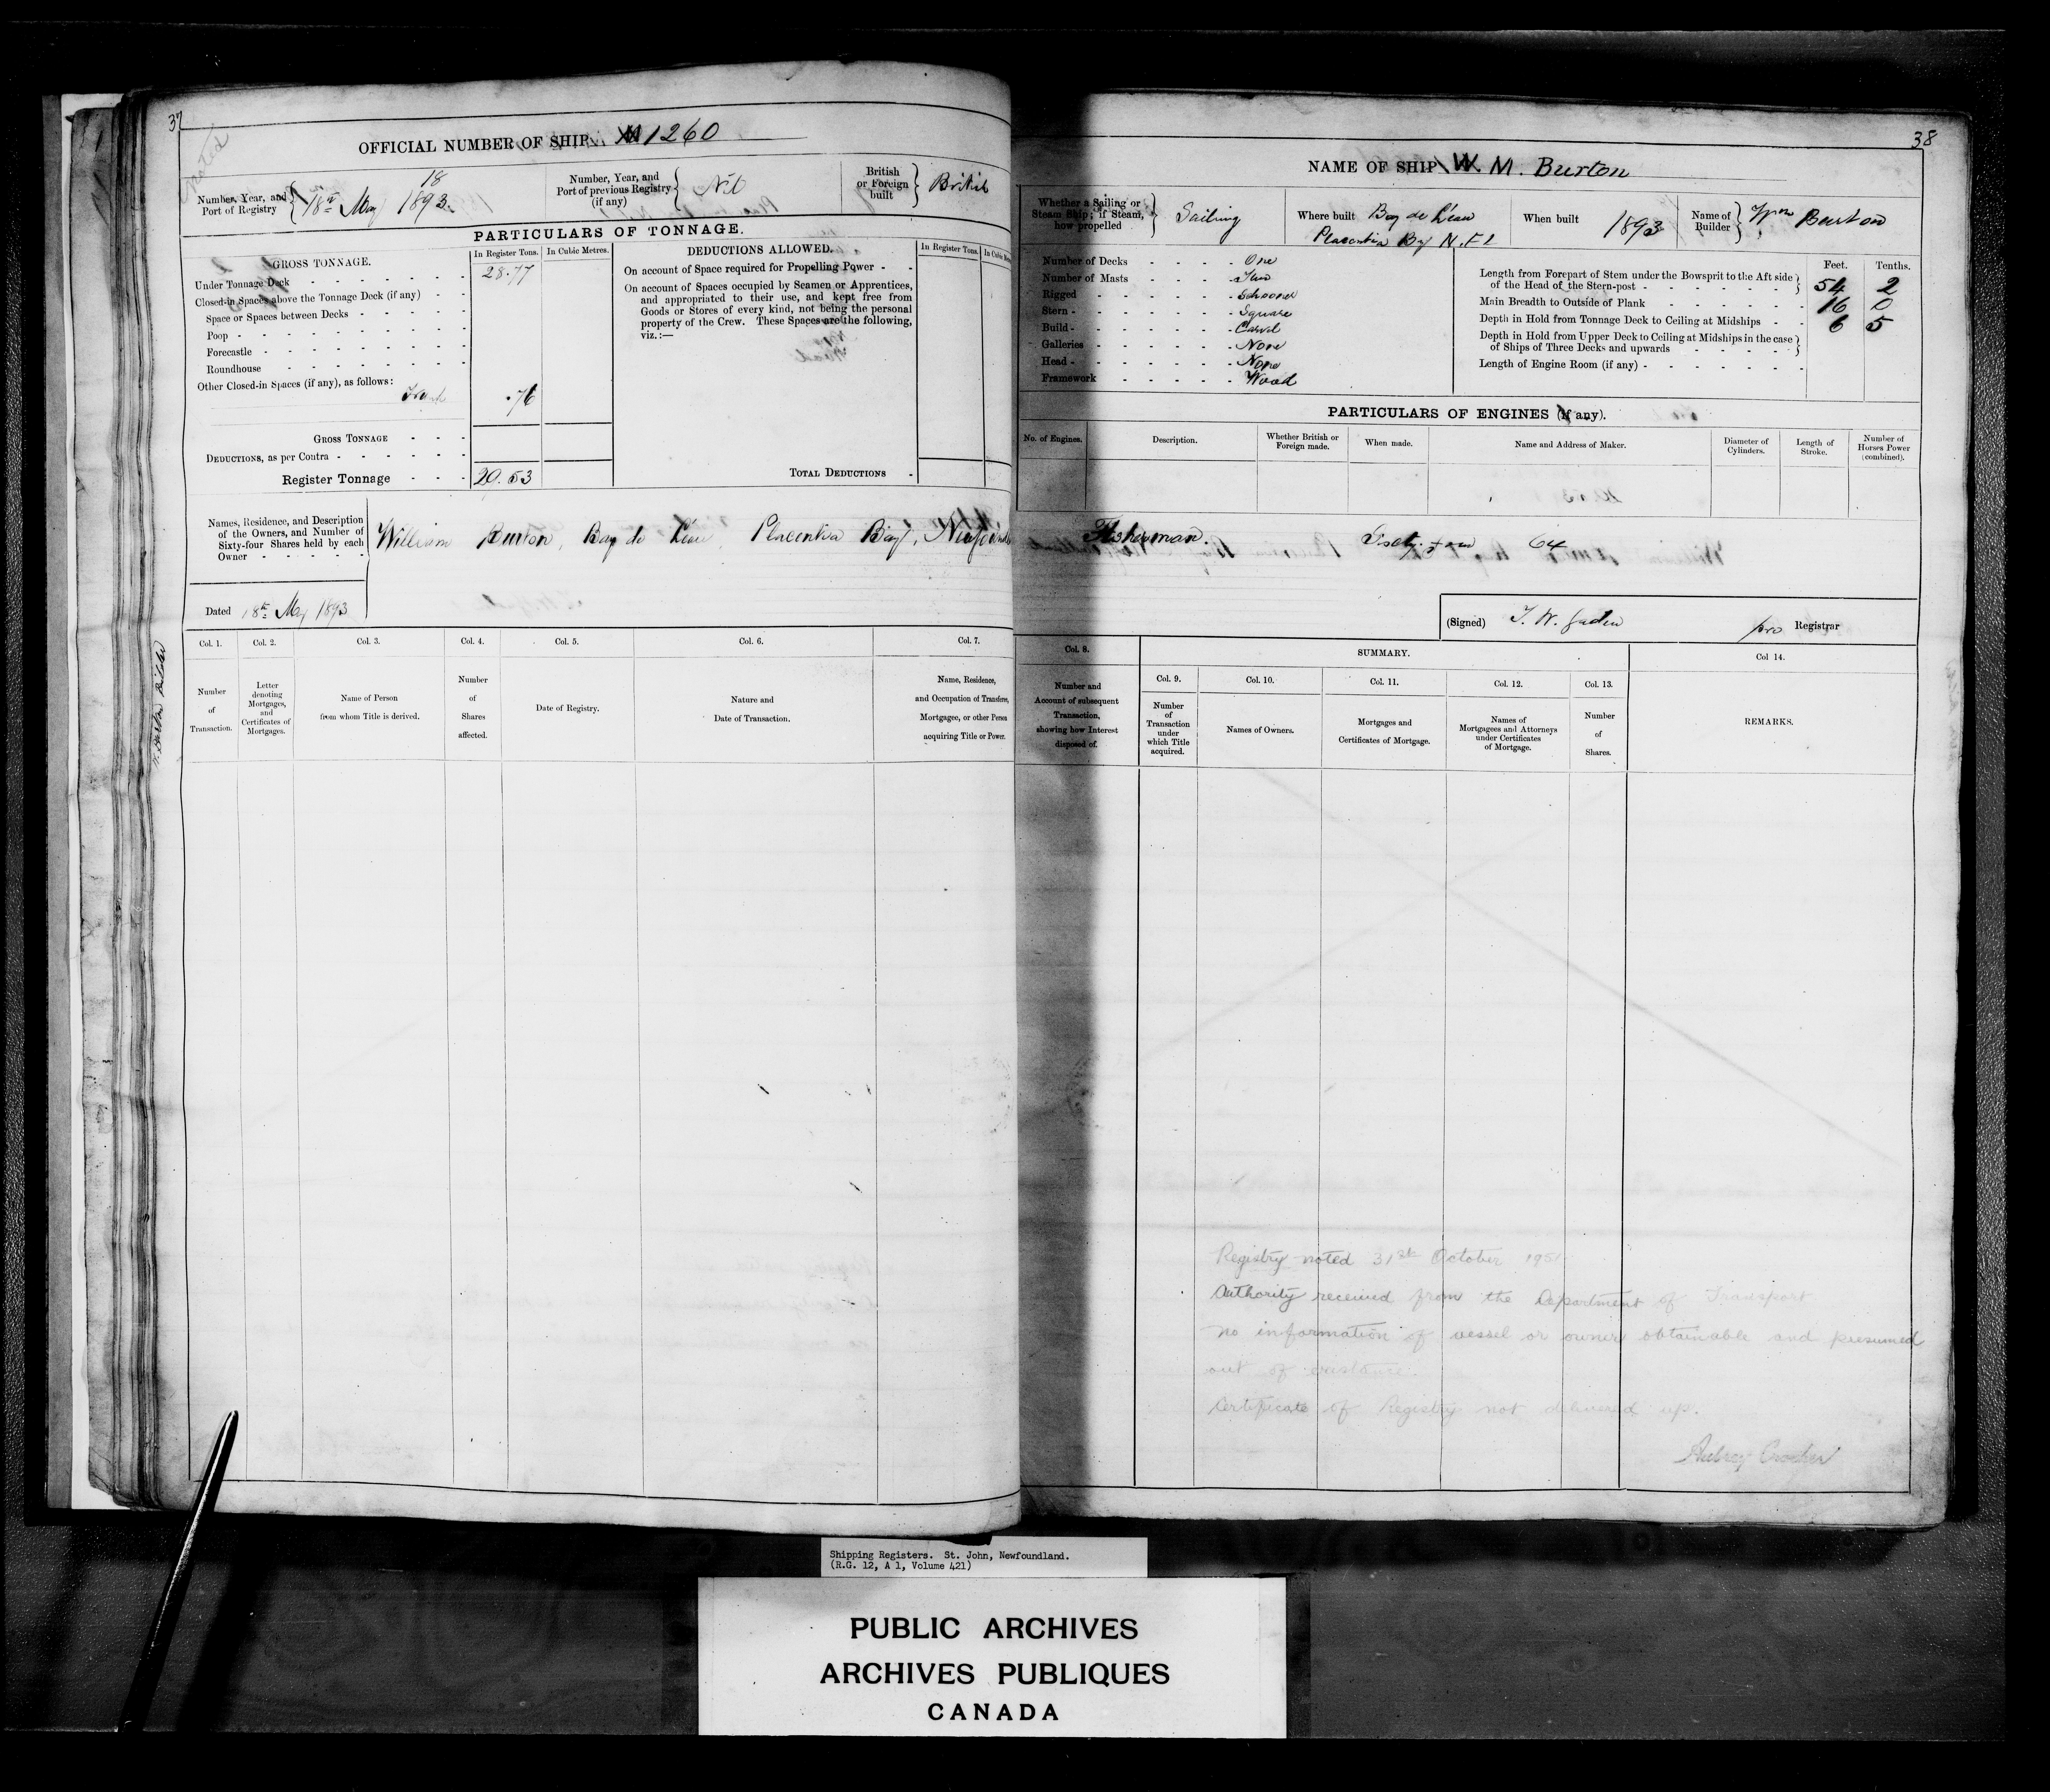 37
OFFICIAL NUMBER OF SHIP 1260
18
Number, Year, and Port of Registry 18th May 1893.
Number, Year, and Port of previous Registry (if any) Nil
British or Foreign built British
PARTICULARS OF TONNAGE.
GROSS TONNAGE. In Register Tons. In Cubic Metres.
Under Tonnage Deck 28.77
Closed-in Spaces above the Tonnage Deck (if any)
Space or Spaces between Decks
Poop
Forecastle
Roundhouse
Other Closed-in Spaces (if any), as follows:
.76
GROSS TONNAGE
DEDUCTIONS, as per Contra
Register Tonnage 29.53
DEDUCTIONS ALLOWED. In Register Tons.
On account of Space required for Propelling Power
On account of Spaces occupied by Seamen or Apprentices,
and appropriated to their use, and kept free from
Goods or Stores of every kind, not being the personal
property of the Crew. These Spaces are the following,
viz.:—
TOTAL DEDUCTIONS
38
NAME OF SHIP W. M. Burton
Whether a Sailing or Steam Ship; if Steam, how propelled Sailing
Where built Bay de L'eau
Placentia Bay N.Fl
When built 1893
Name of Builder Wm Burton
Number of Decks One
Number of Masts Two
Rigged Schooner
Stern Square
Build Carvel
Galleries None
Head None
Framework Wood
Feet. Tenths.
Length from Forepart of Stem under the Bowsprit to the Aft side
of the Head of the Stern-post 54 2
Main Breadth to Outside of Plank 16 0
Depth in Hold from Tonnage Deck to Ceiling at Midships 6 5
Depth in Hold from Upper Deck to Ceiling at Midships in the case
of Ships of Three Decks and upwards
Length of Engine Room (if any)
PARTICULARS OF ENGINES (if any).
No. of Engines.
Description.
Whether British or Foreign made.
When made.
Name and Address of Maker.
Diameter of Cylinders.
Length of Stroke.
Number of Horses Power (combined).
Names, Residence, and Description
of the Owners, and Number of
Sixty-four Shares held by each
Owner
William Burton, Bay de L'eau Placentia Bay, Newfoundland Fisherman. Sixty four 64
Dated 18th May 1893
(Signed) J. W. Gaden pro Registrar
Col. 1. Number of Transaction.
Col. 2. Letter denoting Mortgages, and Certificates of Mortgages.
Col. 3. Name of Person from whom Title is derived.
Col. 4. Number of Shares affected.
Col. 5. Date of Registry.
Col. 6. Nature and Date of Transaction.
Col. 7. Name, Residence, and Occupation of Transferee, Mortgagee, or other Person acquiring Title or Power.
Col. 8. Number and Account of subsequent Transaction, showing how Interest disposed of.
SUMMARY.
Col. 9. Number of Transaction under which Title acquired.
Col. 10. Names of Owners.
Col. 11. Mortgages and Certificates of Mortgage.
Col. 12. Names of Mortgagees and Attorneys under Certificates of Mortgage.
Col. 13. Number of Shares.
Col 14. REMARKS.
Registry noted 31st October 1951
Authority received from the Department of Transport
no information of vessel or owner obtainable and presumed
out of existance.
Certificate of Registry not delivered up.
Shipping Registers. St. John, Newfoundland.
(R.G. 12, A 1, Volume 421)
PUBLIC ARCHIVES
ARCHIVES PUBLIQUES
CANADA